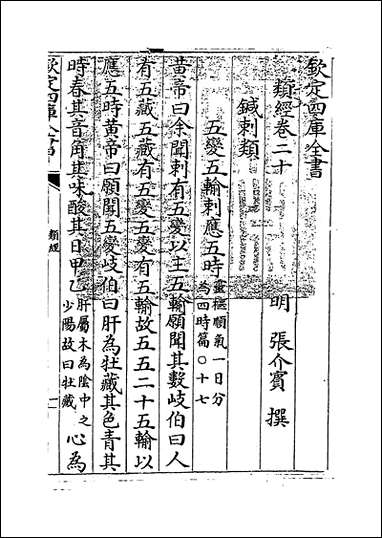 欽定四庫全書
類經卷二十
明 張介賓 撰
鍼刺類
五變五輸刺應五時
靈樞順氣一日分
為四時篇○十七
黃帝曰余聞刺有五變以主五輸願聞其數岐伯曰人
有五藏五藏有五變五變有五輸故五五二十五輸以
應五時黃帝曰願聞五變岐伯曰肝為牡藏其色青其
時春其音角其味酸其日甲乙
肝屬木為陰中之
少陽故曰牡藏
心為
欽定四庫全書
類經
一